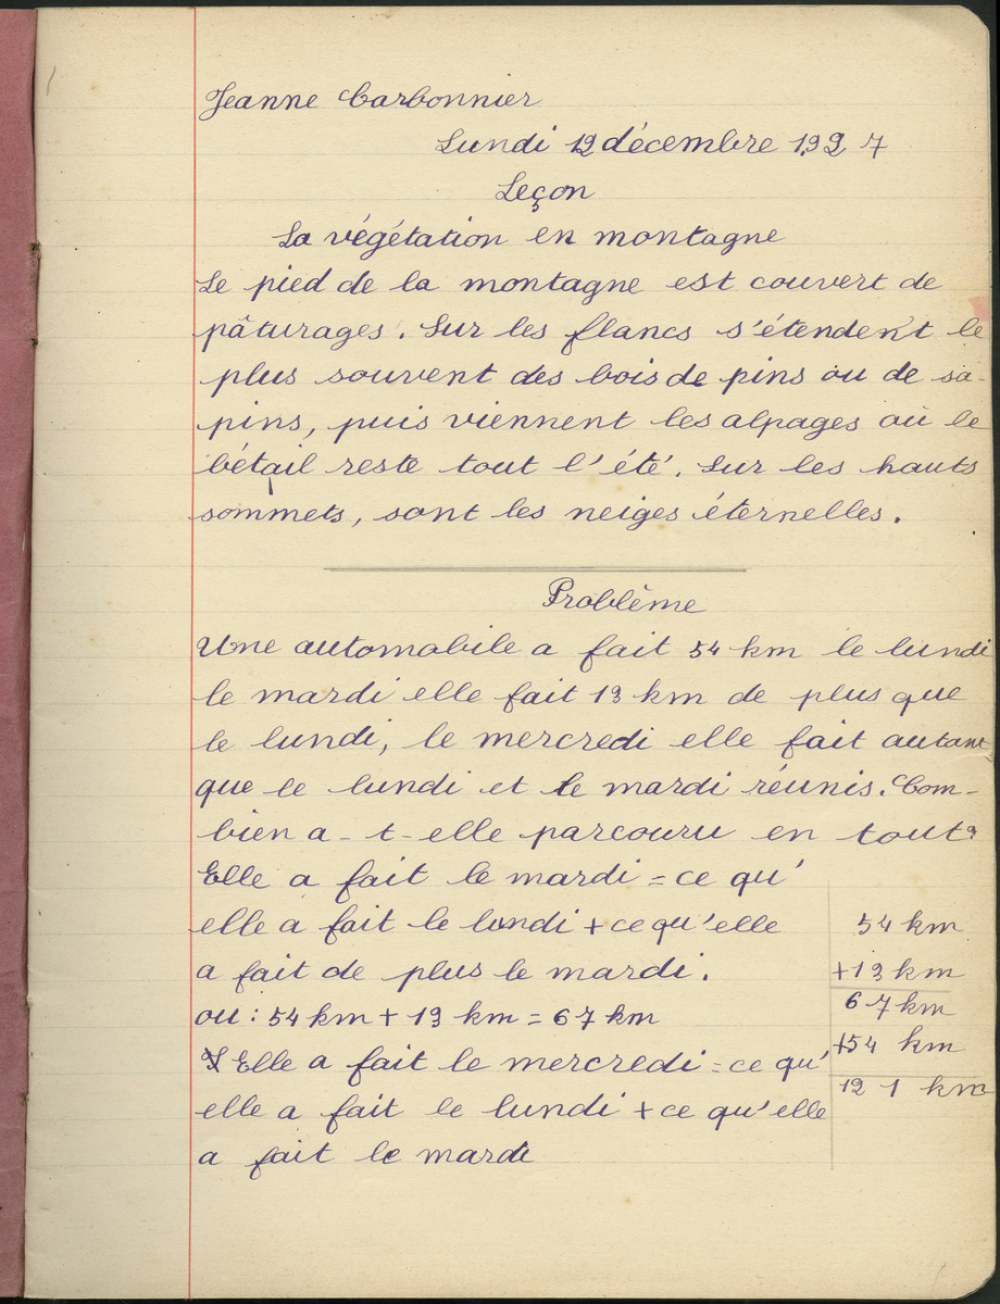 Jeanne Carbonnier
Lundi 12 décembre 1927
Leçon
La végétation en montagne
Le pied de la montagne est couvert de
pâturages. Sur les flancs s'étendent le
plus souvent des bois de pins ou de sa-
pins, puis viennent les alpages où le
bétail reste tout l'été. Sur les hauts
sommets, sont les neiges éternelles.
Problème
Une automobile a fait 54 km le lundi
le mardi elle fait 13 km de plus que
le lundi, le mercredi elle fait autant
que le lundi et le mardi réunis. Com-
bien a-t-elle parcouru en tout?
Elle a fait le mardi = ce qu'
elle a fait le lundi + ce qu'elle
a fait de plus le mardi.
ou : 54 km + 13 km = 67 km
Elle a fait le mercredi = ce qu'
elle a fait le lundi + ce qu'elle
a fait le mardi
54 km
+13 km
67 km
+54 km
121 km